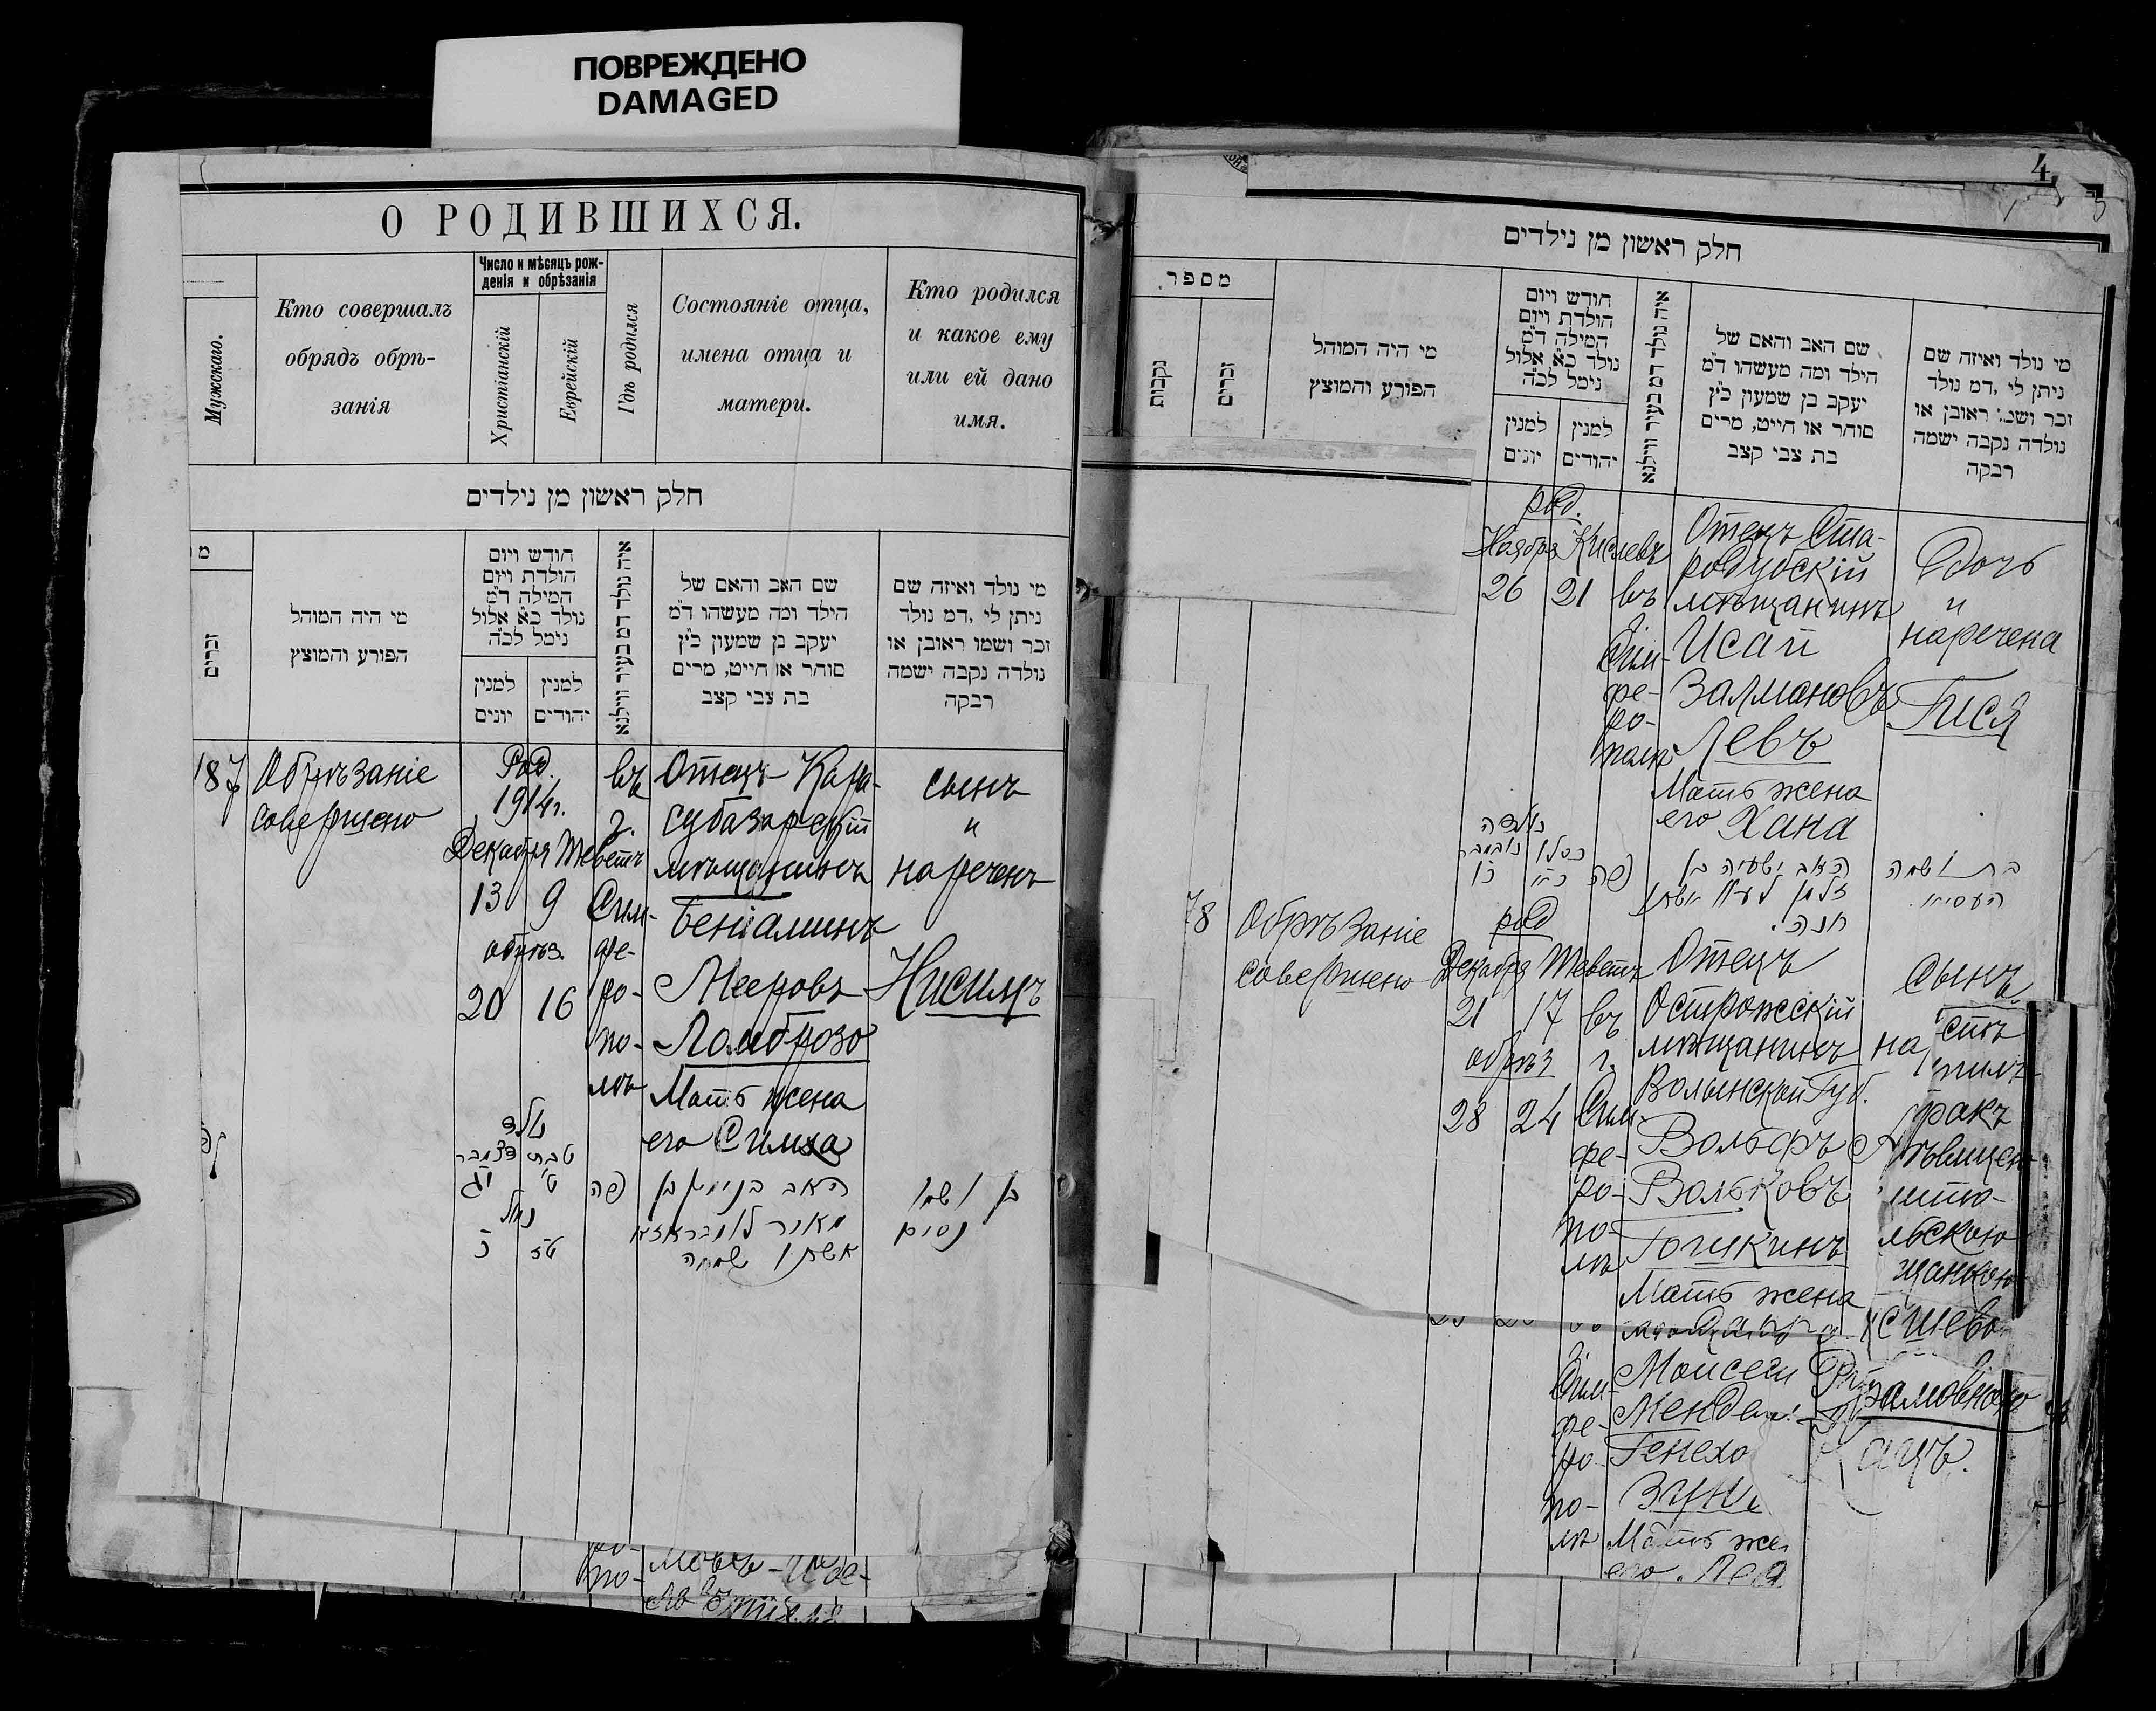 ПОВРЕЖДЕНО
DAMAGED
О РОДИВШИХСЯ.
Мужскаго.
Кто совершалъ
обрядъ обрѣ-
занія
Число и мѣсяцъ рож-
денія и обрѣзанія
Христіанскій
Еврейскій
Гдѣ родился
Состояніе отца,
имена отца и
матери.
Кто родился
и какое ему
или ей дано
имя.
חלק ראשון מן נילדים
זכרים
מי היה המוהל
הפורע והמוצץ
חודש ויום
הולדת ויום
המילה ד״מ
נולד כ״א אלול
נימל לכ״ה
למנין
יונים
למנין
יהודים
איה נולד דמ בעיר ווילנא
שם האב והאם של
הילד ומה מעשהו ד״מ
יעקב בן שמעון כ״ץ
סוחר או חייט, מרים
בת צבי קצב
מי נולד ואיזה שם
ניתן לי ,דמ נולד
זכר ושמו ראובן או
נולדה נקבה ישמה
רבקה
187
Обрѣзаніе
совершено
Род.
1914г.
Декабря Теветъ
13 9
обрѣз.
20 16
въ
г.
Сим-
фе-
ро-
по-
лѣ
Отецъ Кара-
субазарскій
мѣщанинъ
Беніаминъ
Мееровъ
Ломброзо
Мать жена
его Симха
сынъ
и
нареченъ
Нисимъ
נולד
טבת דצמבר
ט׳ יג
נמול
טז כ
פה
האב בנימין בן
מאיר לומבראזא
אשתו שמחה
בן ושמו
נסים
по-
4
חלק ראשון מן נילדים
מספר.
נקבות
זכרים
מי היה המוהל
הפורע והמוצץ
חודש ויום
הולדת ויום
המילה ד״מ
נולד כ״א אלול
נימל לכ״ה
למנין
יונים
למנין
יהודים
איה נולד דמ בעיר ווילנא
שם האב והאם של
הילד ומה מעשהו ד״מ
יעקב בן שמעון כ״ץ
סוחר או חייט, מרים
בת צבי קצב
מי נולד ואיזה שם
ניתן לי ,דמ נולד
זכר ושמ: ראובן או
נולדה נקבה ישמה
רבקה
род.
Ноября Кислевъ
26 21
въ
Сим-
фе-
ро-
полѣ
Отецъ Ста-
родубскій
мѣщанинъ
Исай
Залмановъ
Левъ
Мать жена
его Хана
Дочь
и
наречена
Гися
נולדה
כסלו נובמבר
פה
האב ישעיה בן
חנה.
בת ושמה
78
Обрѣзаніе
совершено
род
Декабря Теветъ
21 17
обрѣз
28 24
въ
г.
Сим-
фе-
ро-
по-
лѣ
Отецъ
Острожскій
мѣщанинъ
Волынской Губ.
Вольфъ
Вольковъ
Гошкинъ
Мать жена
Сынъ
на
Сим-
фе-
ро-
по-
лѣ
Моисей
Мендел
Генехо
Зун
Мать же
его Лея
ракъ
льскою
щанкою